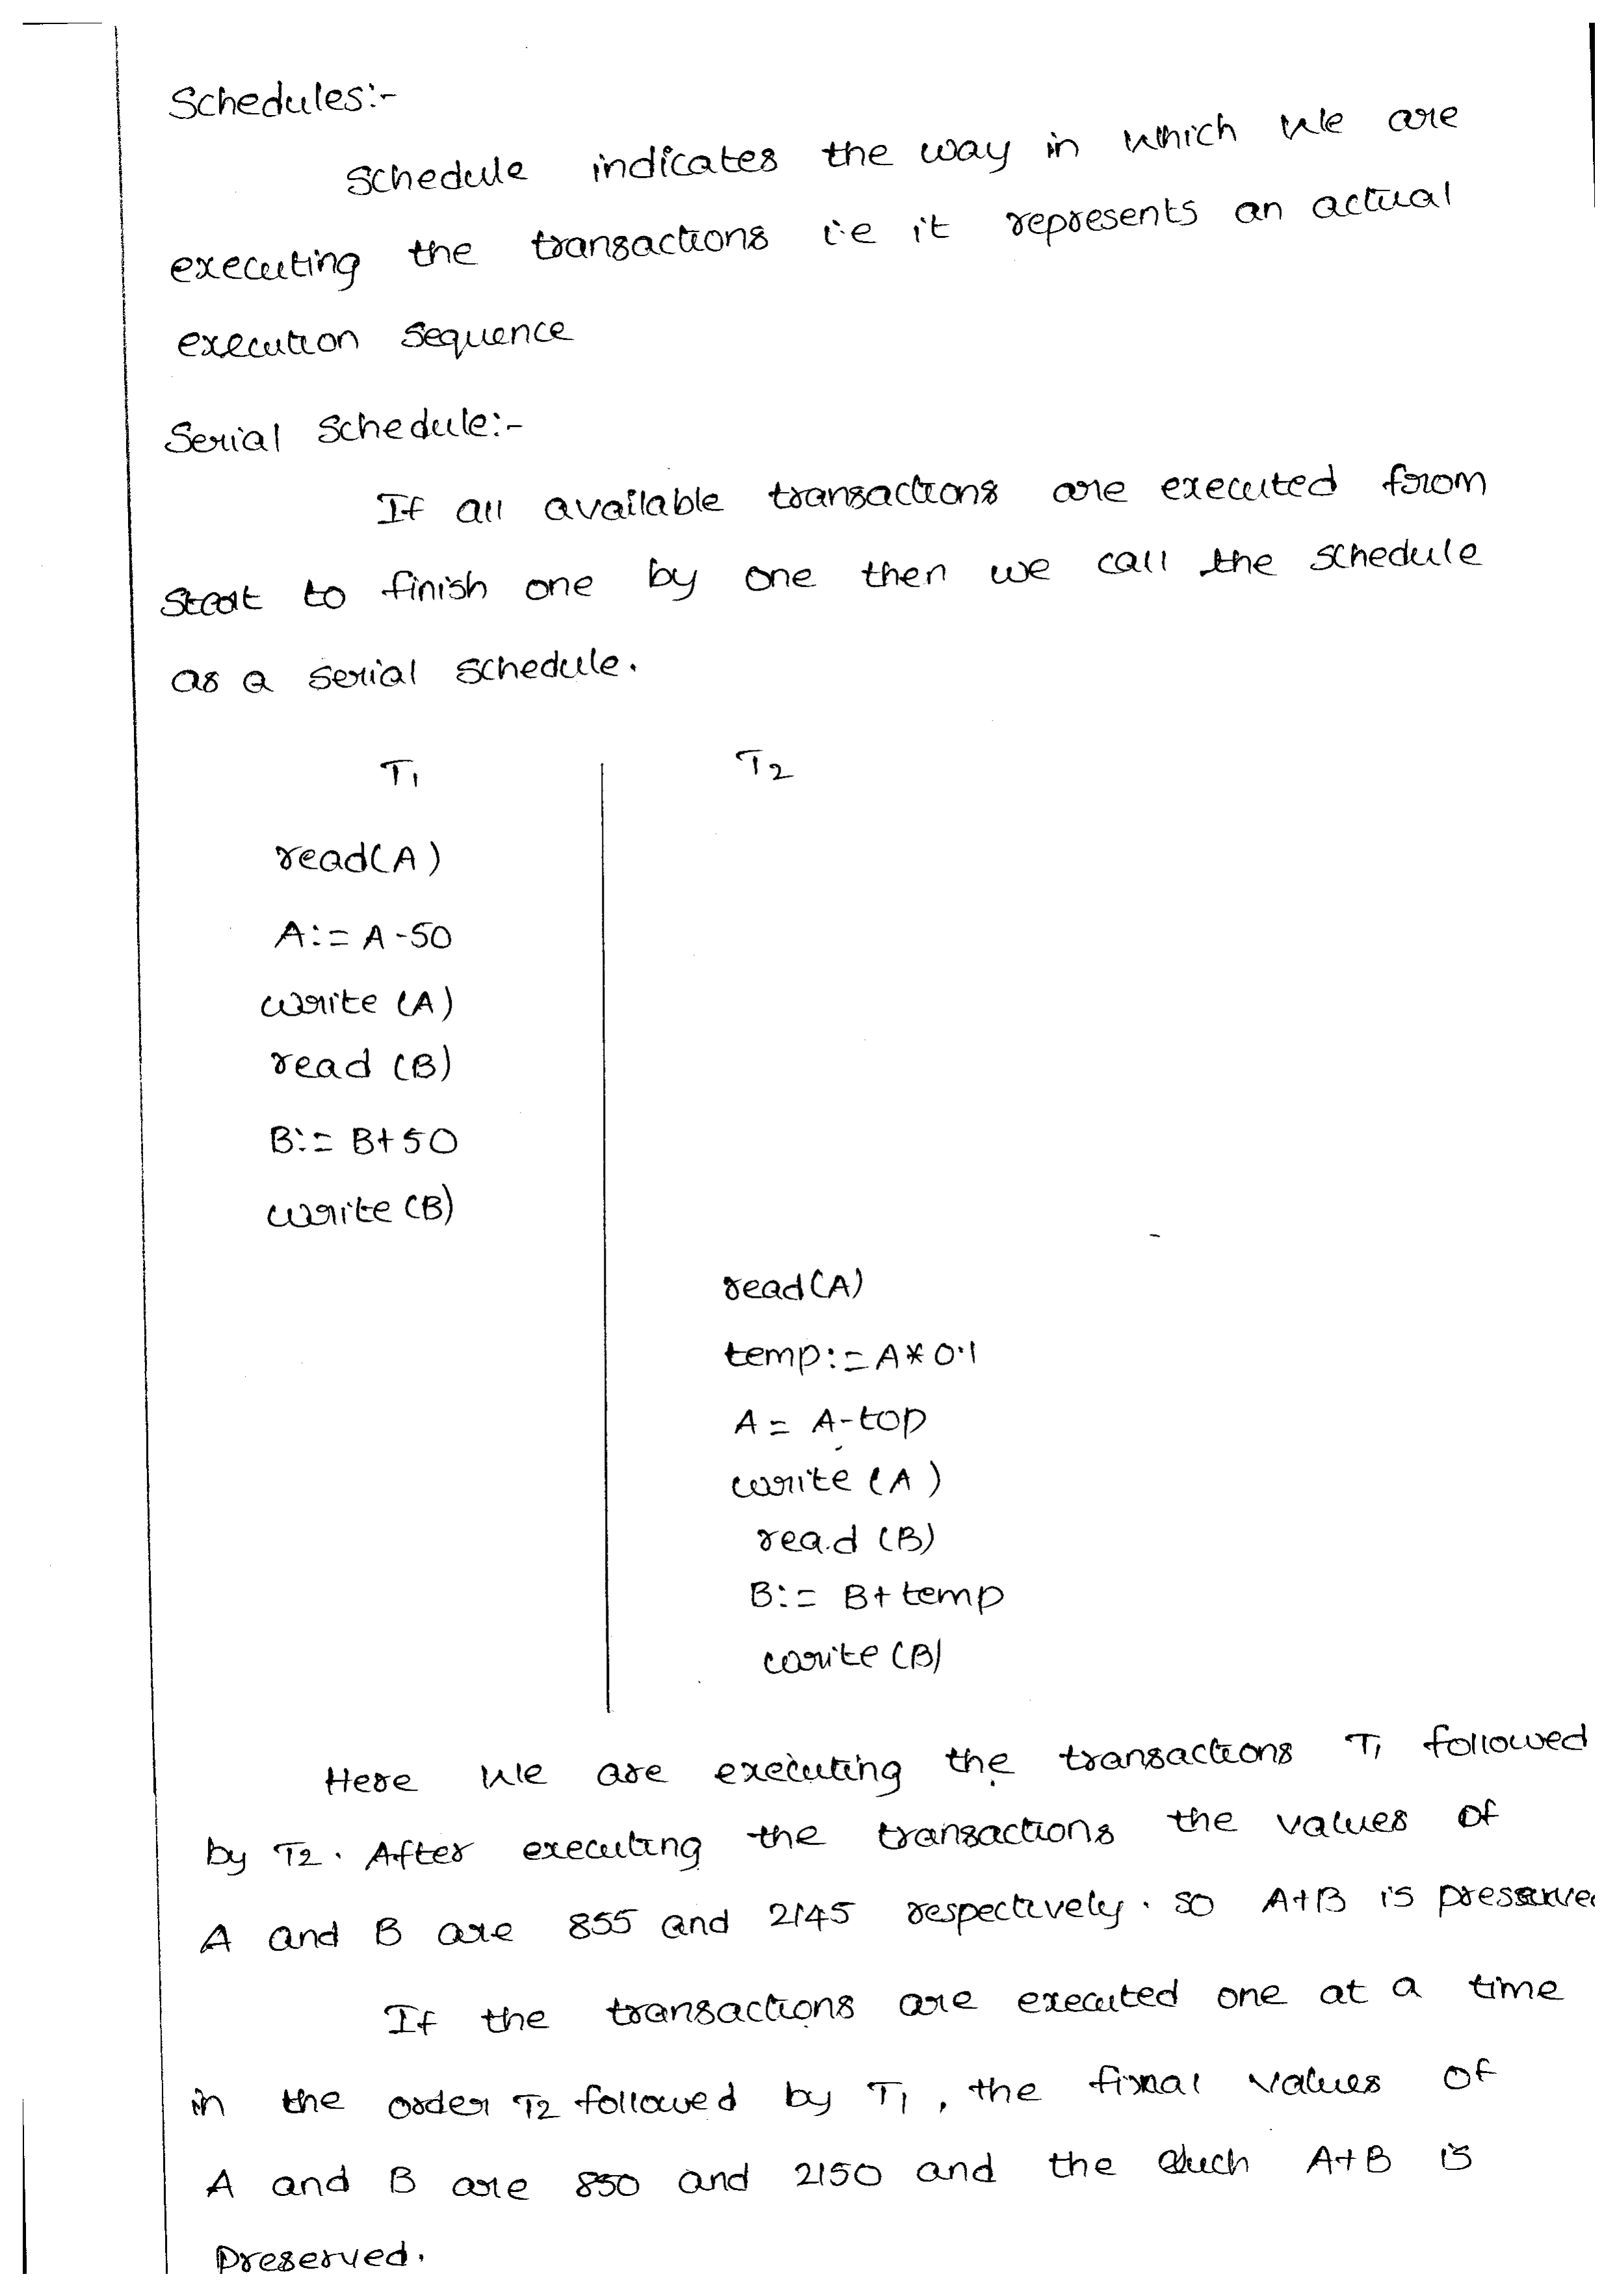 Schedules:-
Schedule indicates the way in which we are
executing the transactions i.e it represents an actual
execution sequence
Serial Schedule:-
If all available transactions are executed from
start to finish one by one then we call the schedule
as a serial schedule.
T1 T2
read(A)
A:= A-50
write (A)
read (B)
B:= B+50
write (B)
read(A)
temp:= A*0.1
A = A-top
write (A)
read (B)
B:= B+temp
write (B)
Here we are executing the transactions T1 followed
by T2. After executing the transactions the values of
A and B are 855 and 2145 respectively. so A+B is preserve
If the transactions are executed one at a time
in the order T2 followed by T1, the final values of
A and B are 850 and 2150 and the such A+B is
preserved.